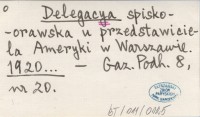 Delegacya spisko-
-orawska u przedstawicie-
la Ameryki w Warszawie.
1920... — Gaz. Podh. 8,
nr 20.
bT/011/0025